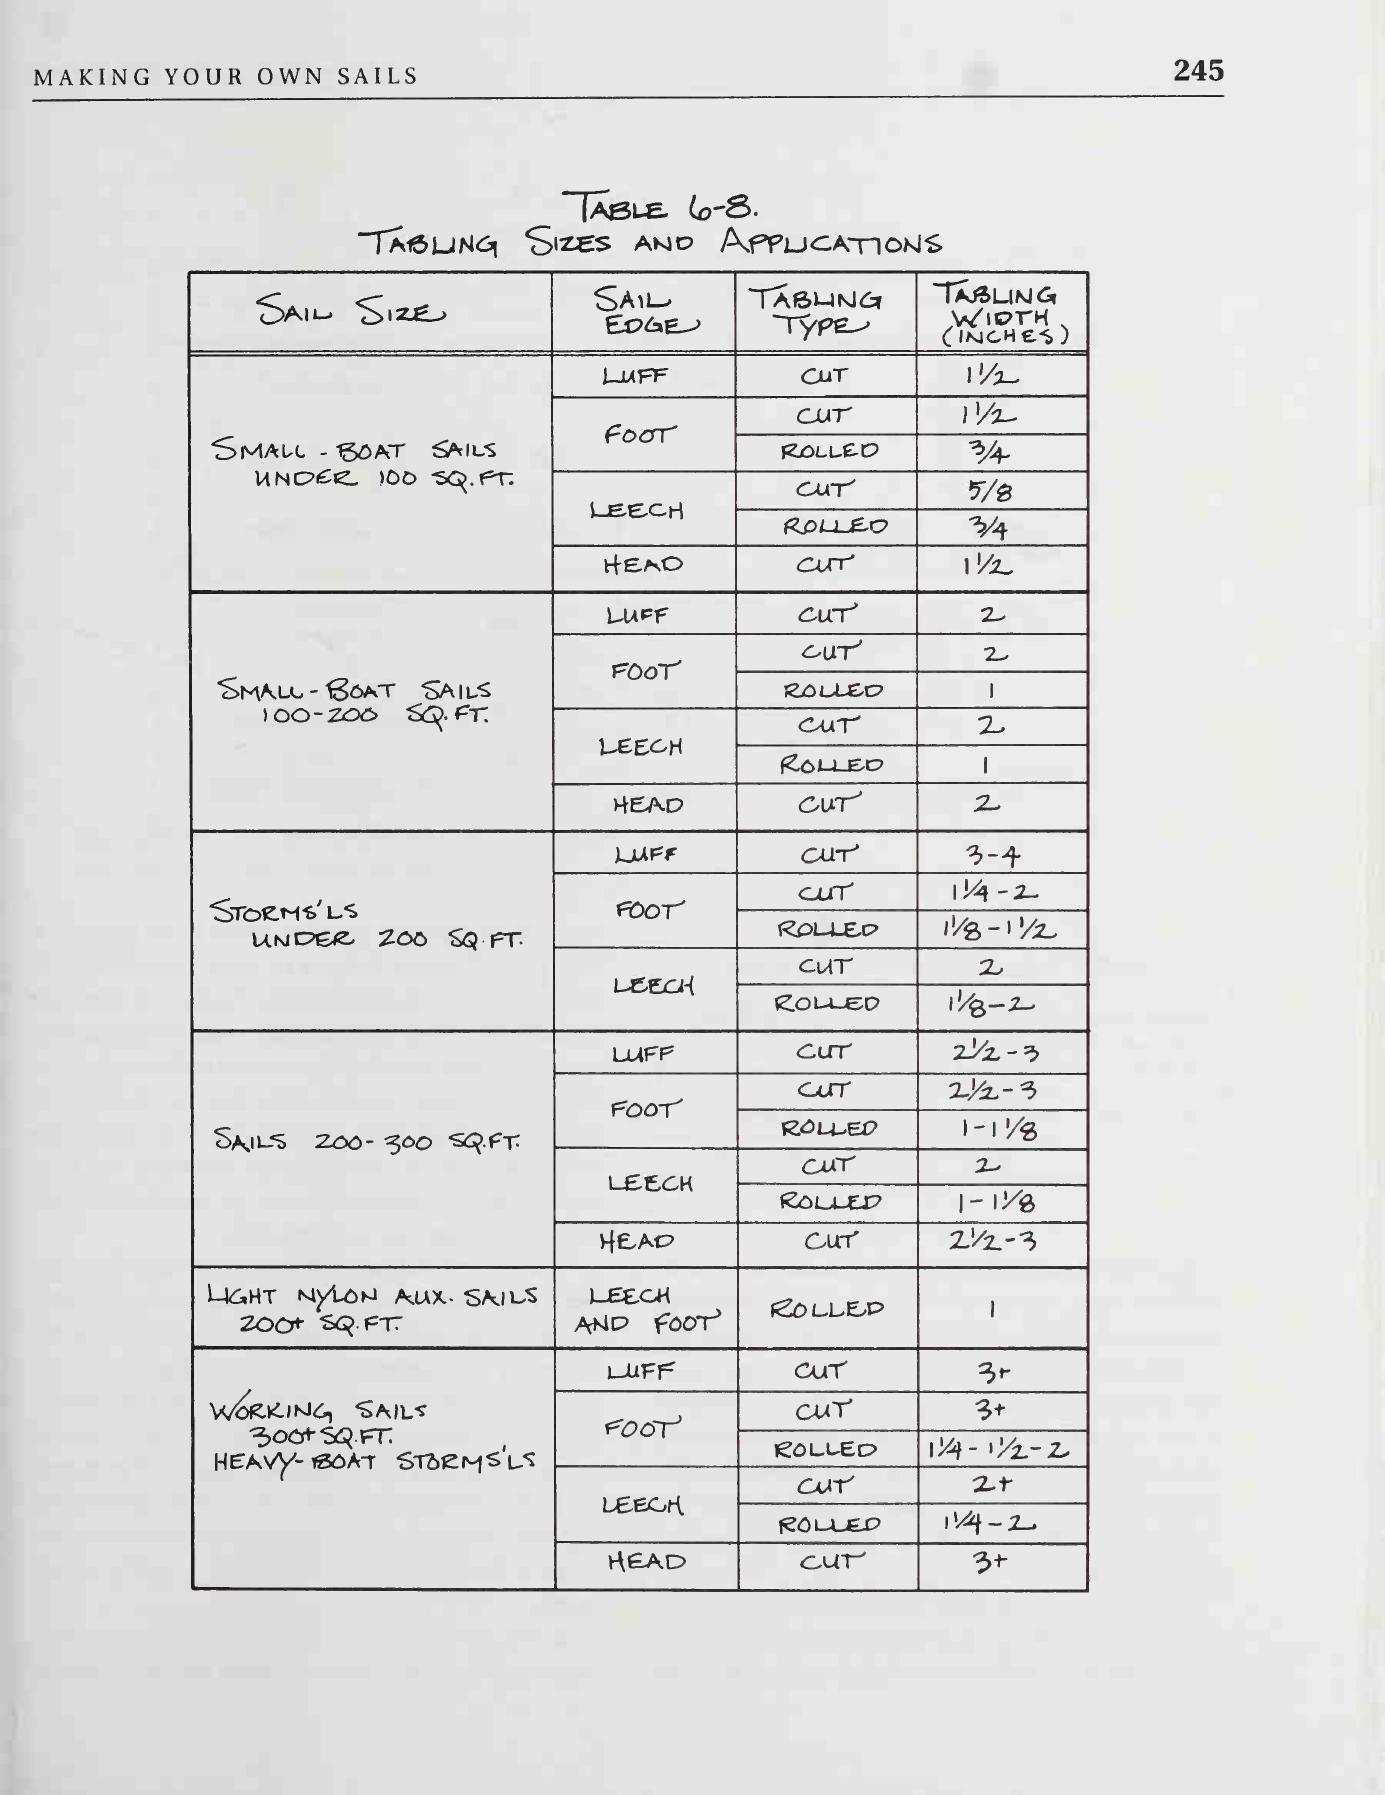 MAKING YOUR OWN SAILS 245
TABLE 6-8.
TABLING SIZES AND APPLICATIONS
SAIL SIZE SAIL EDGE TABLING TYPE TABLING WIDTH (INCHES)
SMALL-BOAT SAILS
UNDER 100 SQ.FT.
LUFF CUT 1 1/2
FOOT CUT 1 1/2
ROLLED 3/4
LEECH CUT 5/8
ROLLED 3/4
HEAD CUT 1 1/2
SMALL-BOAT SAILS
100-200 SQ.FT.
LUFF CUT 2
FOOT CUT 2
ROLLED 1
LEECH CUT 2
ROLLED 1
HEAD CUT 2
STORMS'LS
UNDER 200 SQ.FT.
LUFF CUT 3-4
FOOT CUT 1 1/4-2
ROLLED 1 1/8-1 1/2
LEECH CUT 2
ROLLED 1 1/8-2
SAILS 200-300 SQ.FT.
LUFF CUT 2 1/2-3
FOOT CUT 2 1/2-3
ROLLED 1-1 1/8
LEECH CUT 2
ROLLED 1-1 1/8
HEAD CUT 2 1/2-3
LIGHT NYLON AUX. SAILS
200+ SQ.FT.
LEECH
AND FOOT
ROLLED 1
WORKING SAILS
300+ SQ.FT.
HEAVY-BOAT STORMS'LS
LUFF CUT 3+
FOOT CUT 3+
ROLLED 1 1/4-1 1/2-2
LEECH CUT 2+
ROLLED 1 1/4-2
HEAD CUT 3+